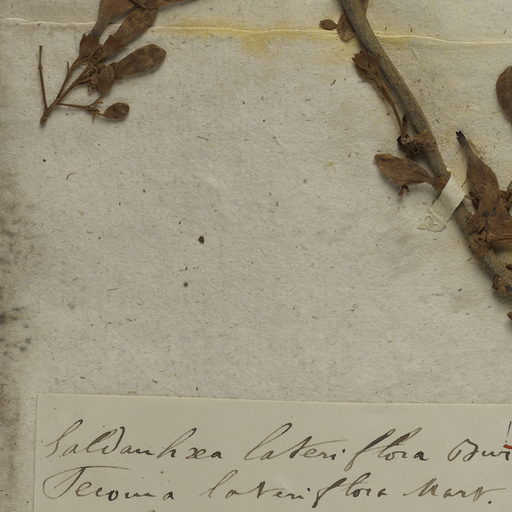 Saldanhæa lateriflora Bur
Tecoma lateriflora Mart.